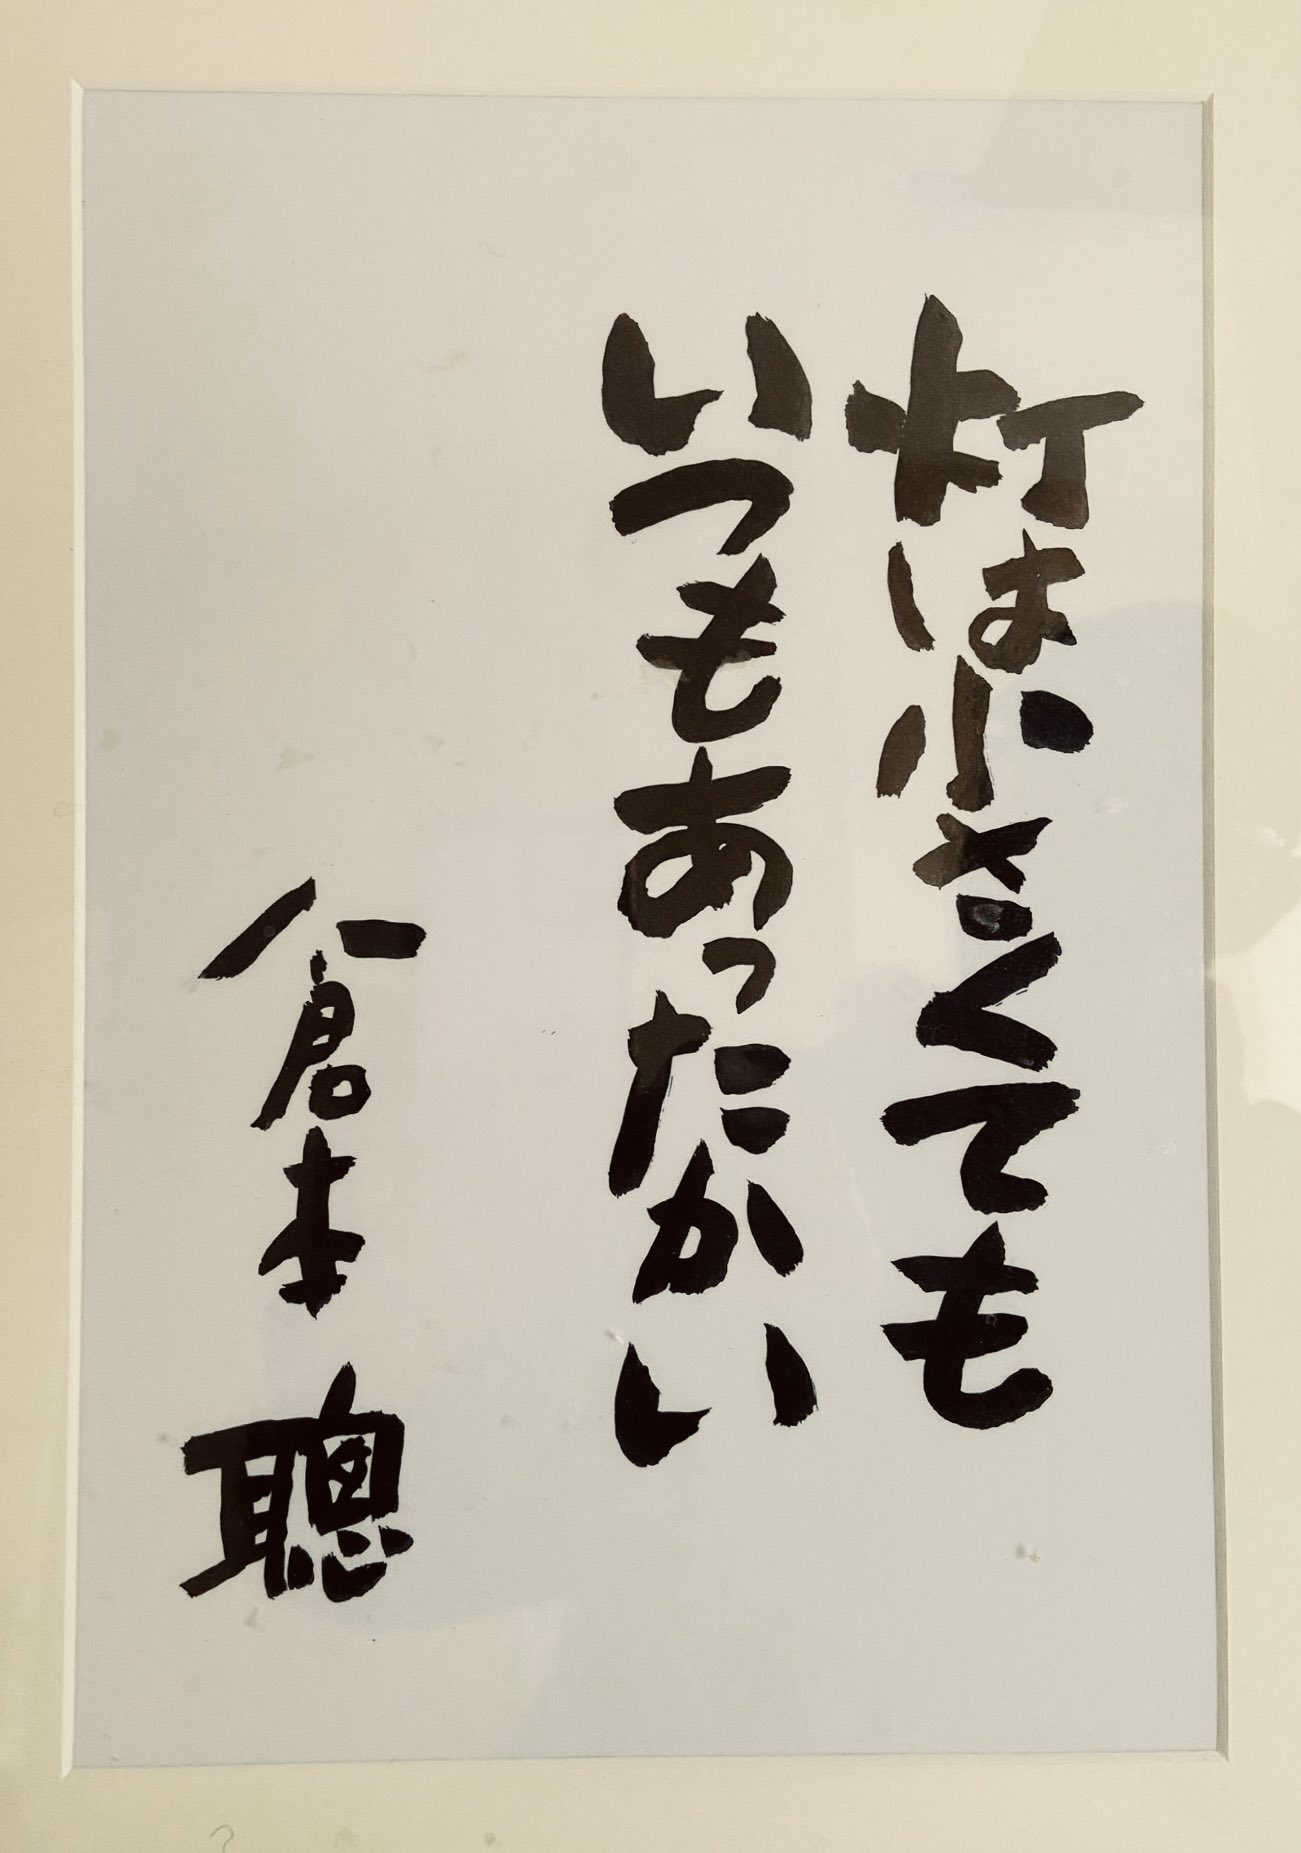 灯は小さくても
いつもあったかい
倉本 聰